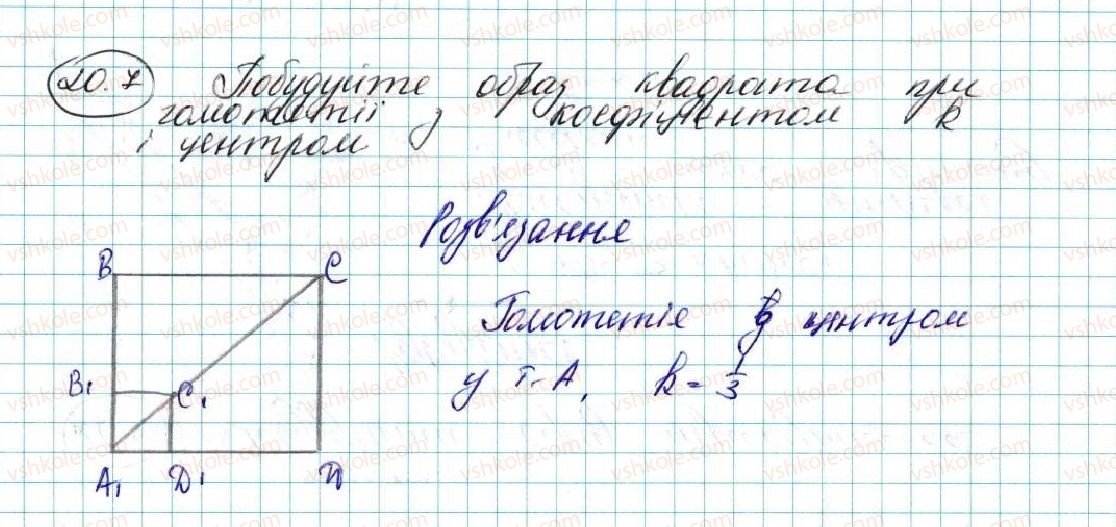 20.7 Побудуйте образ квадрата при
гомотетії з коефіцієнтом k
і центром
Розв'язання
B C
Гомотетія з центром
у т. A, k = 1/3
B₁ C₁
A₁ D₁ D
vshkole.com